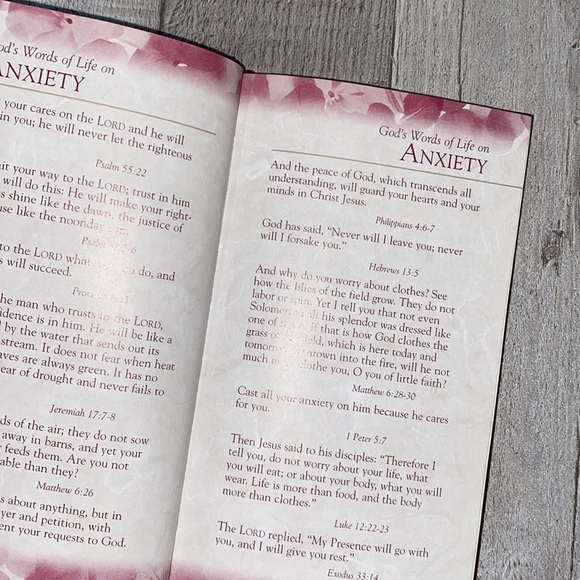 od's Words of Life on
NXIETY
your cares on the LORD and he will
in you; he will never let the righteous
Psalm 55:22
it your way to the LORD; trust in him
will do this: He will make your right-
s shine like the dawn, the justice of
use like the noonday
Psalm
to the LORD do, and
s will succeed.
he man who trusts in the LORD,
fidence is in him. He will be like a
d by the water that sends out its
stream. It does not fear when heat
aves are always green. It has no
ear of drought and never fails to
Jeremiah 17:7-8
ds of the air; they do not sow
away in barns, and yet your
r feeds them. Are you not
able than they?
Matthew 6:26
s about anything, but in
yer and petition, with
ent your requests to God.
God's Words of Life on
ANXIETY
And the peace of God, which transcends all
understanding, will guard your hearts and your
minds in Christ Jesus.
Philippians 4:6-7
God has said, “Never will I leave you; never
will I forsake you.”
Hebrews 13:5
And why do you worry about clothes? See
how the lilies of the field grow. They do not
labor or spin. Yet I tell you that not even
Solomon in all his splendor was dressed like
one of these. If that is how God clothes the
grass field, which is here today and
tomorrow is thrown into the fire, will he not
much more clothe you, O you of little faith?
Matthew 6:28-30
Cast all your anxiety on him because he cares
for you.
1 Peter 5:7
Then Jesus said to his disciples: “Therefore I
tell you, do not worry about your life, what
you will eat; or about your body, what you will
wear. Life is more than food, and the body
more than clothes.”
Luke 12:22-23
The LORD replied, “My Presence will go with
you, and I will give you rest.”
Exodus 33:14